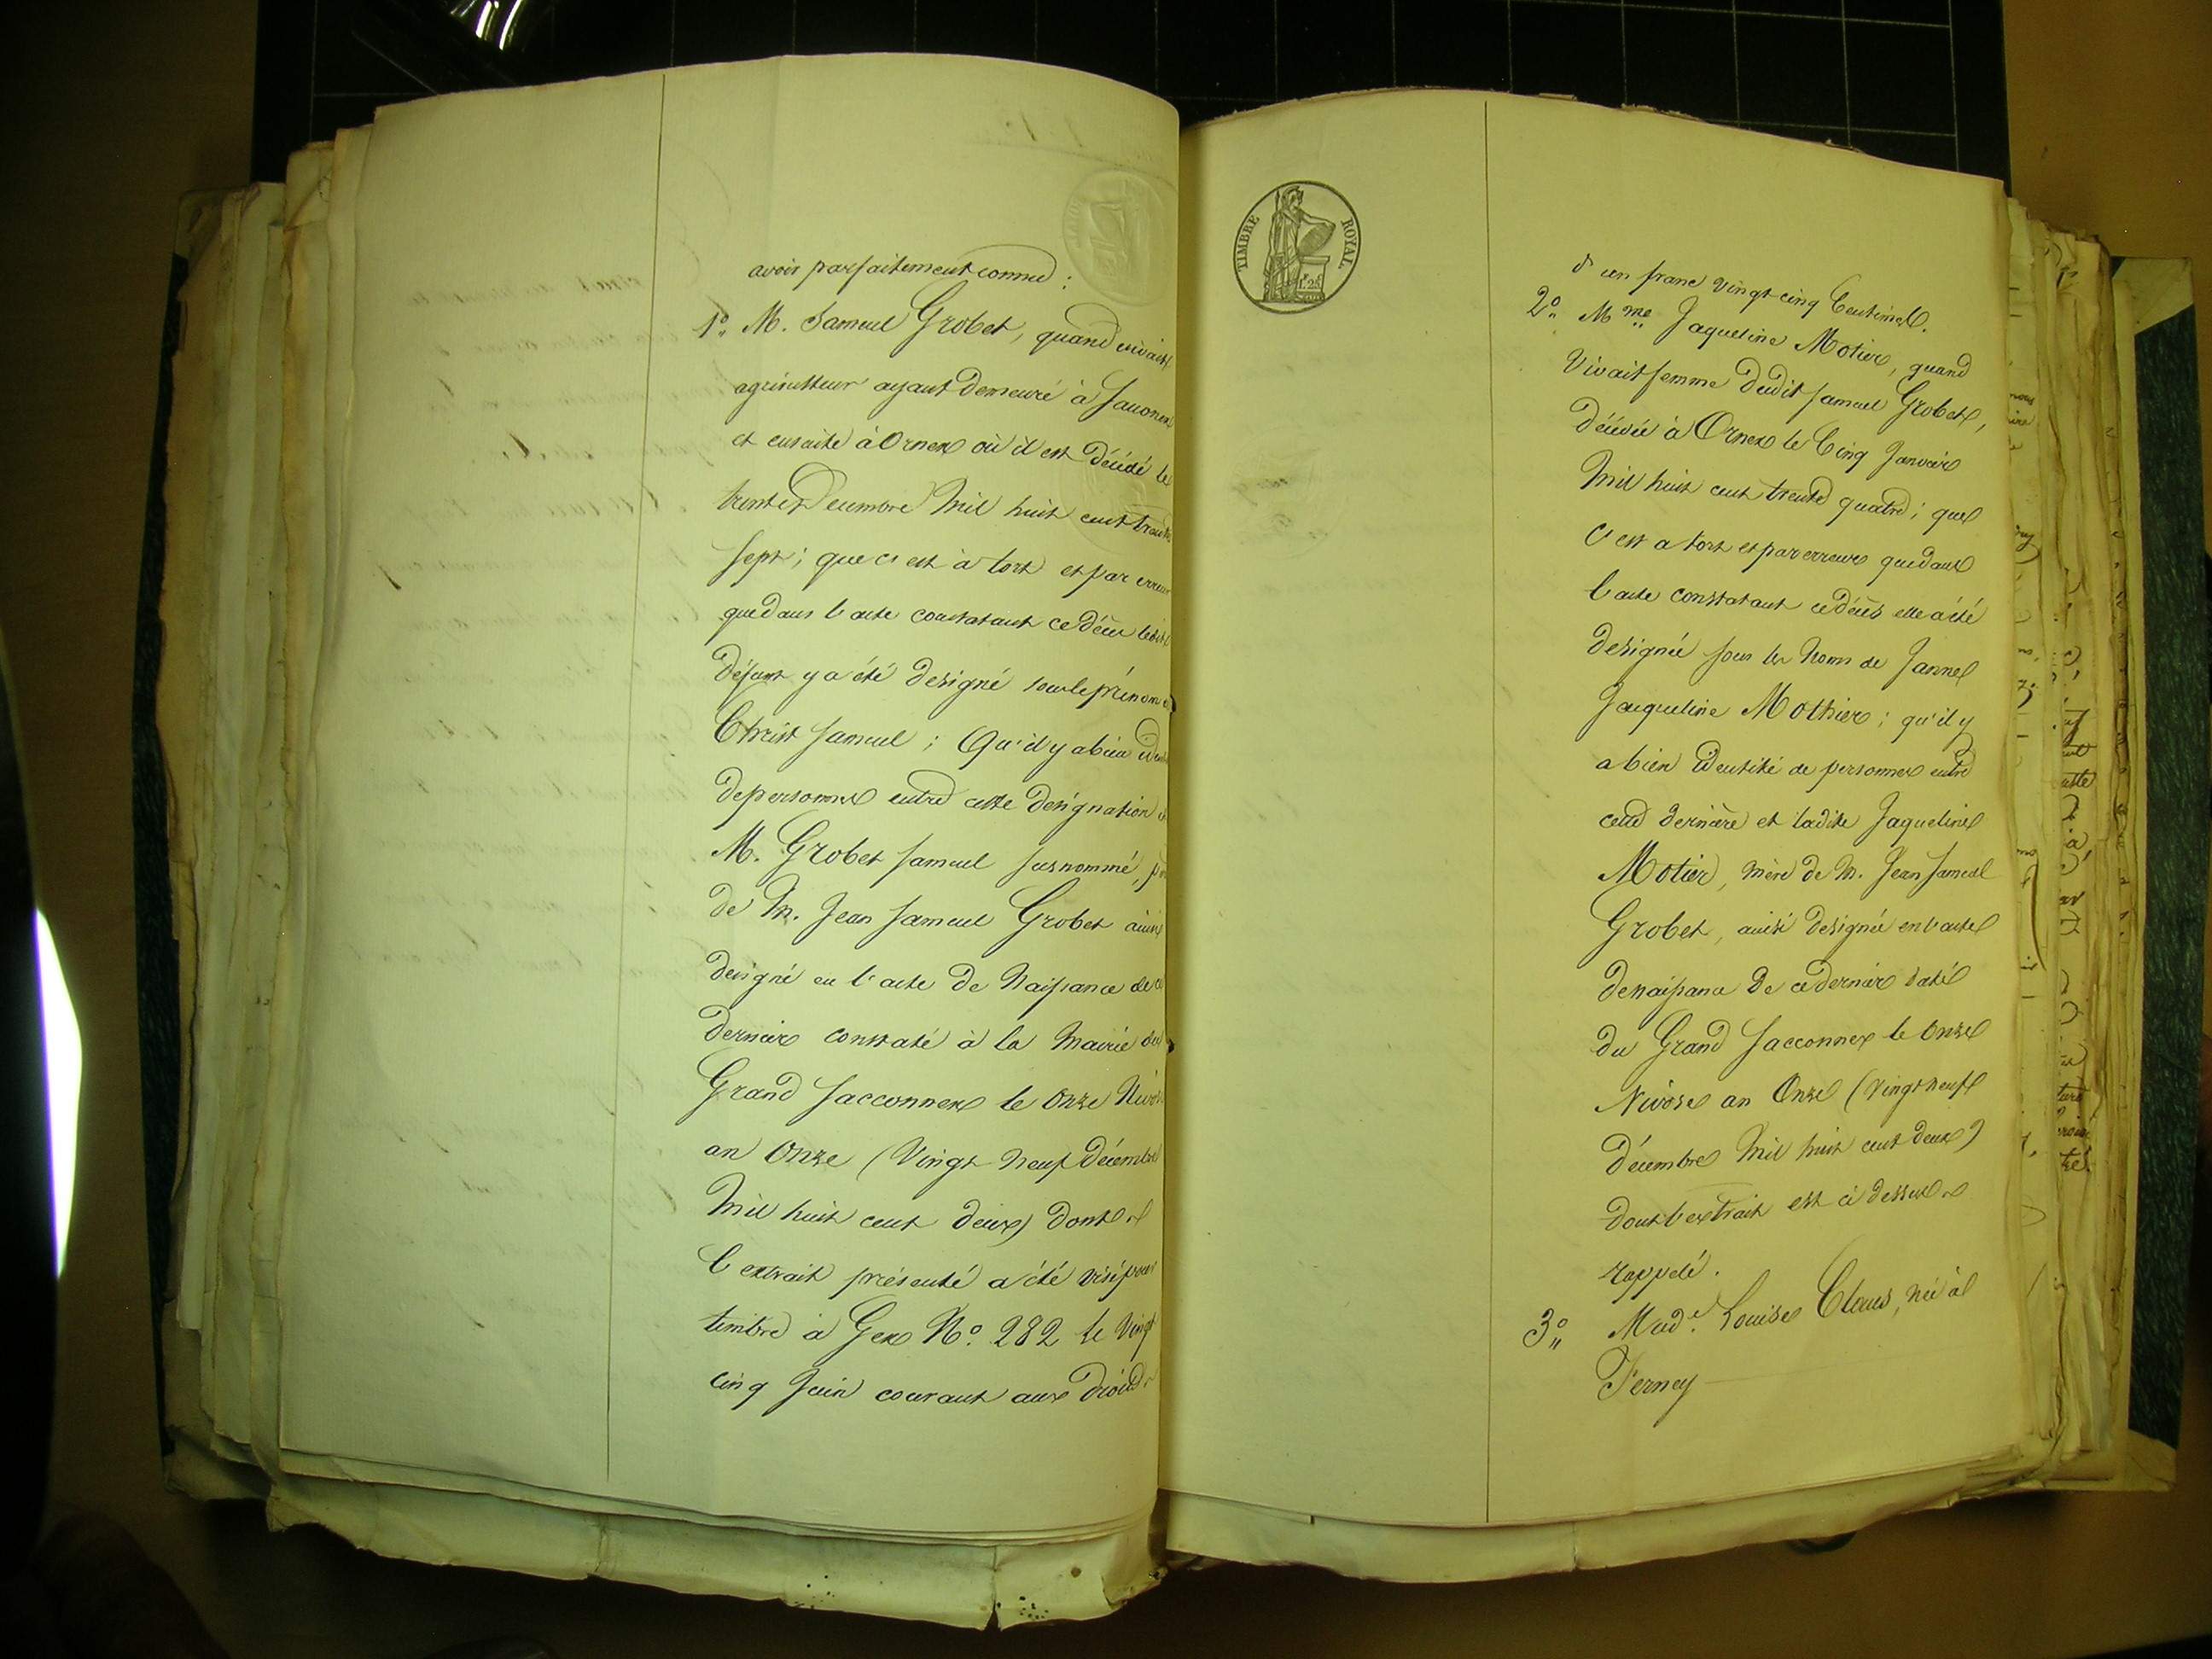 avoir parfaitement connu :
1° M. Samuel Grobet, quand vivait
agriculteur ayant demeuré à Saconnex
et ensuite à Ornex où il est décédé le
trente Decembre Mil huit cent trente
sept ; que c'est à tort et par erreur
que dans l'acte constatant ce décès ledit
défunt y a été designé sous le prénom de
Christ Samuel ; Qu'il y a bien
de personnes entre cette designation et
M. Grobet Samuel susnommé,
de M. Jean Samuel Grobet ainsi
designé en l'acte de Naissance de ce
dernier constaté à la Mairie du
Grand Sacconnex le Onze Nivose
an Onze (Vingt neuf Décembre
Mil huit cent deux) dont
l'extrait présenté a été visé pour
timbre à Gex N° 282 le Vingt
cinq Juin courant aux droits
TIMBRE ROYAL
1f. 25
d'un franc vingt cinq Centimes.
2° Mme Jaqueline Motier, quand
vivait femme dudit Samuel Grobet,
décédée à Ornex le Cinq Janvier
Mil huit cent trente quatre ; que
c'est a tort et par erreur que dans
l'acte constatant ce décès elle a été
designée sous les Noms de Janne
Jacqueline Mothier ; qu'il y
a bien identité de personnes entre
cette dernière et ladite Jaqueline
Motier, mère de M. Jean Samuel
Grobet, ainsi designée en l'acte
de naissance de ce dernier daté
du Grand Sacconnex le Onze
Nivose an Onze (Vingt neuf
décembre Mil huit cent deux)
dont l'extrait est ci dessus
rappelé.
3° Made. Louise Claus, née à
Ferney